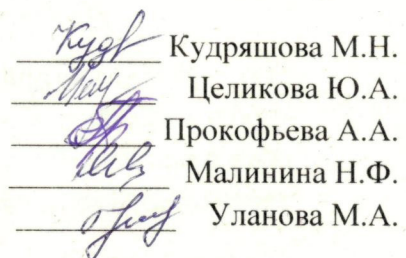 Кудряшова М.Н.
Целикова Ю.А.
Прокофьева А.А.
Малинина Н.Ф.
Уланова М.А.